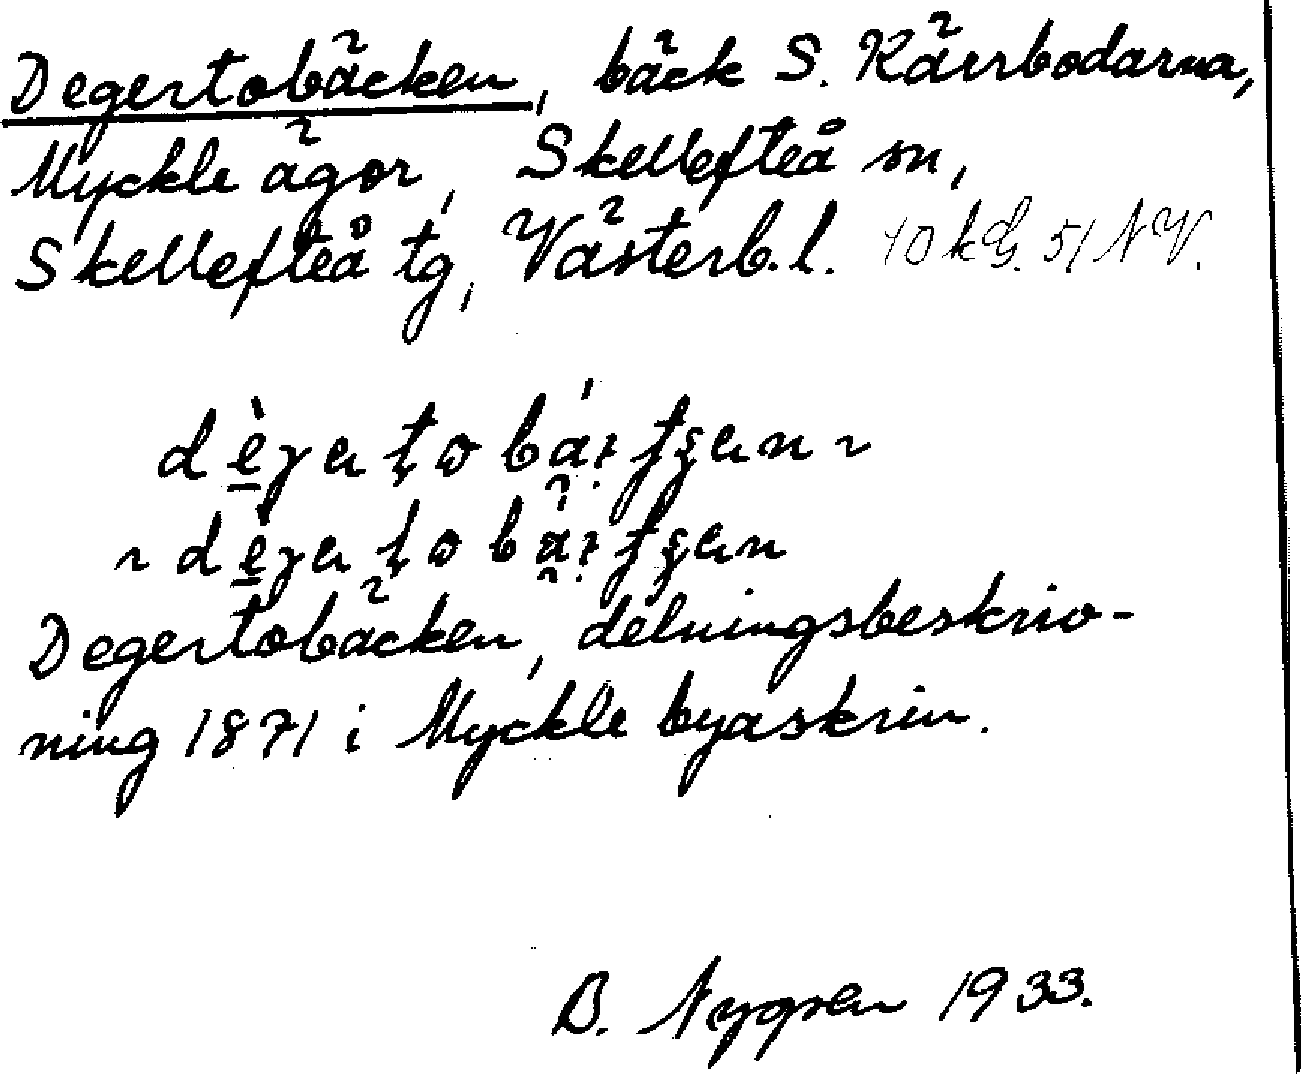 Degertobäcken, bäck S. Kärrbodarna,
Myckle ägor, Skellefteå sn,
Skellefteå tg, Västerb.l. 10 kG. 51 NV.
Degertobäcken, delningsbeskriv-
ning 1871 i Myckle byaskrin.
B. Nygren 1933.